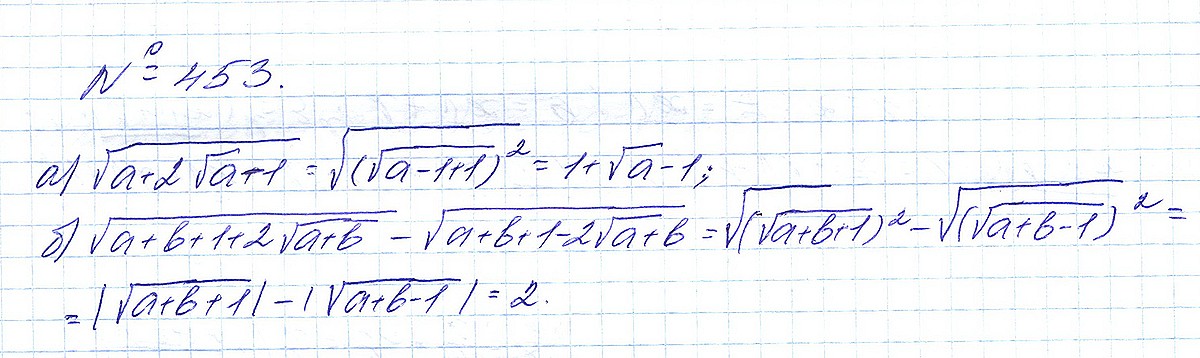 № 453.
а) √(a+2√(a+1)) = √((√(a-1+1))²) = 1+√a-1;
б) √(a+b+1+2√(a+b)) - √(a+b+1-2√a+b) = √((√(a+b+1))²) - √((√(a+b-1))²) =
= |√(a+b+1)| - |√(a+b-1)| = 2.